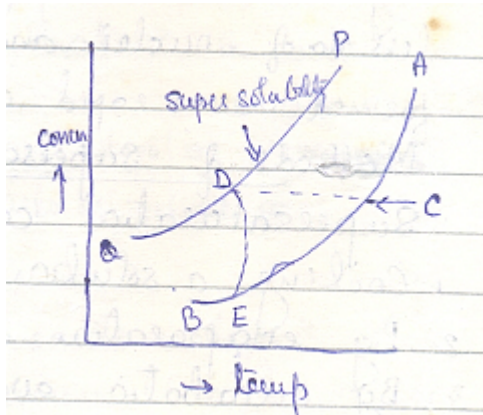 P
A
super solubility
concn
D
C
Q
B E
→ temp